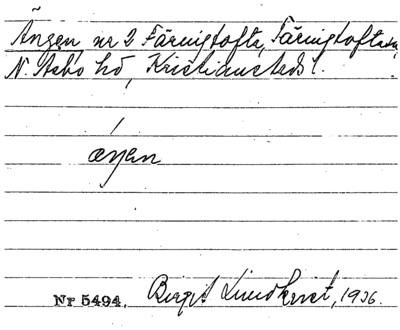 Ängen, nr 2 Färingtofta, Färingtofta sn,
N. Åsbo hd, Kristianstads l.
æŋen
Nr 5494. Birgit Lindkvist, 1936.